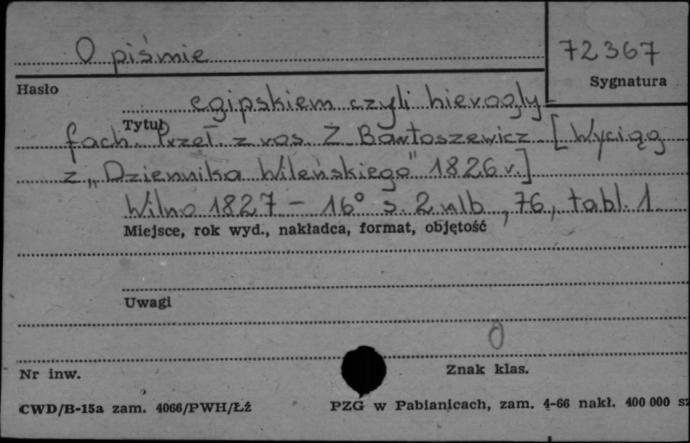 O piśmie
72367
Hasło
Sygnatura
egipskiem czyli hierogly-
Tytuł
fach. Przeł. z ros. Z. Bartoszewicz. [Wyciąg
z „Dziennika Wileńskiego" 1826 r.]
Wilno 1827 - 16° s. 2 nlb, 76, tabl. 1
Miejsce, rok wyd., nakładca, format, objętość
Uwagi
0
Nr inw.
Znak klas.
CWD/B-15a zam. 4066/PWH/Łź
PZG w Pabianicach, zam. 4-66 nakł. 400 000 sz